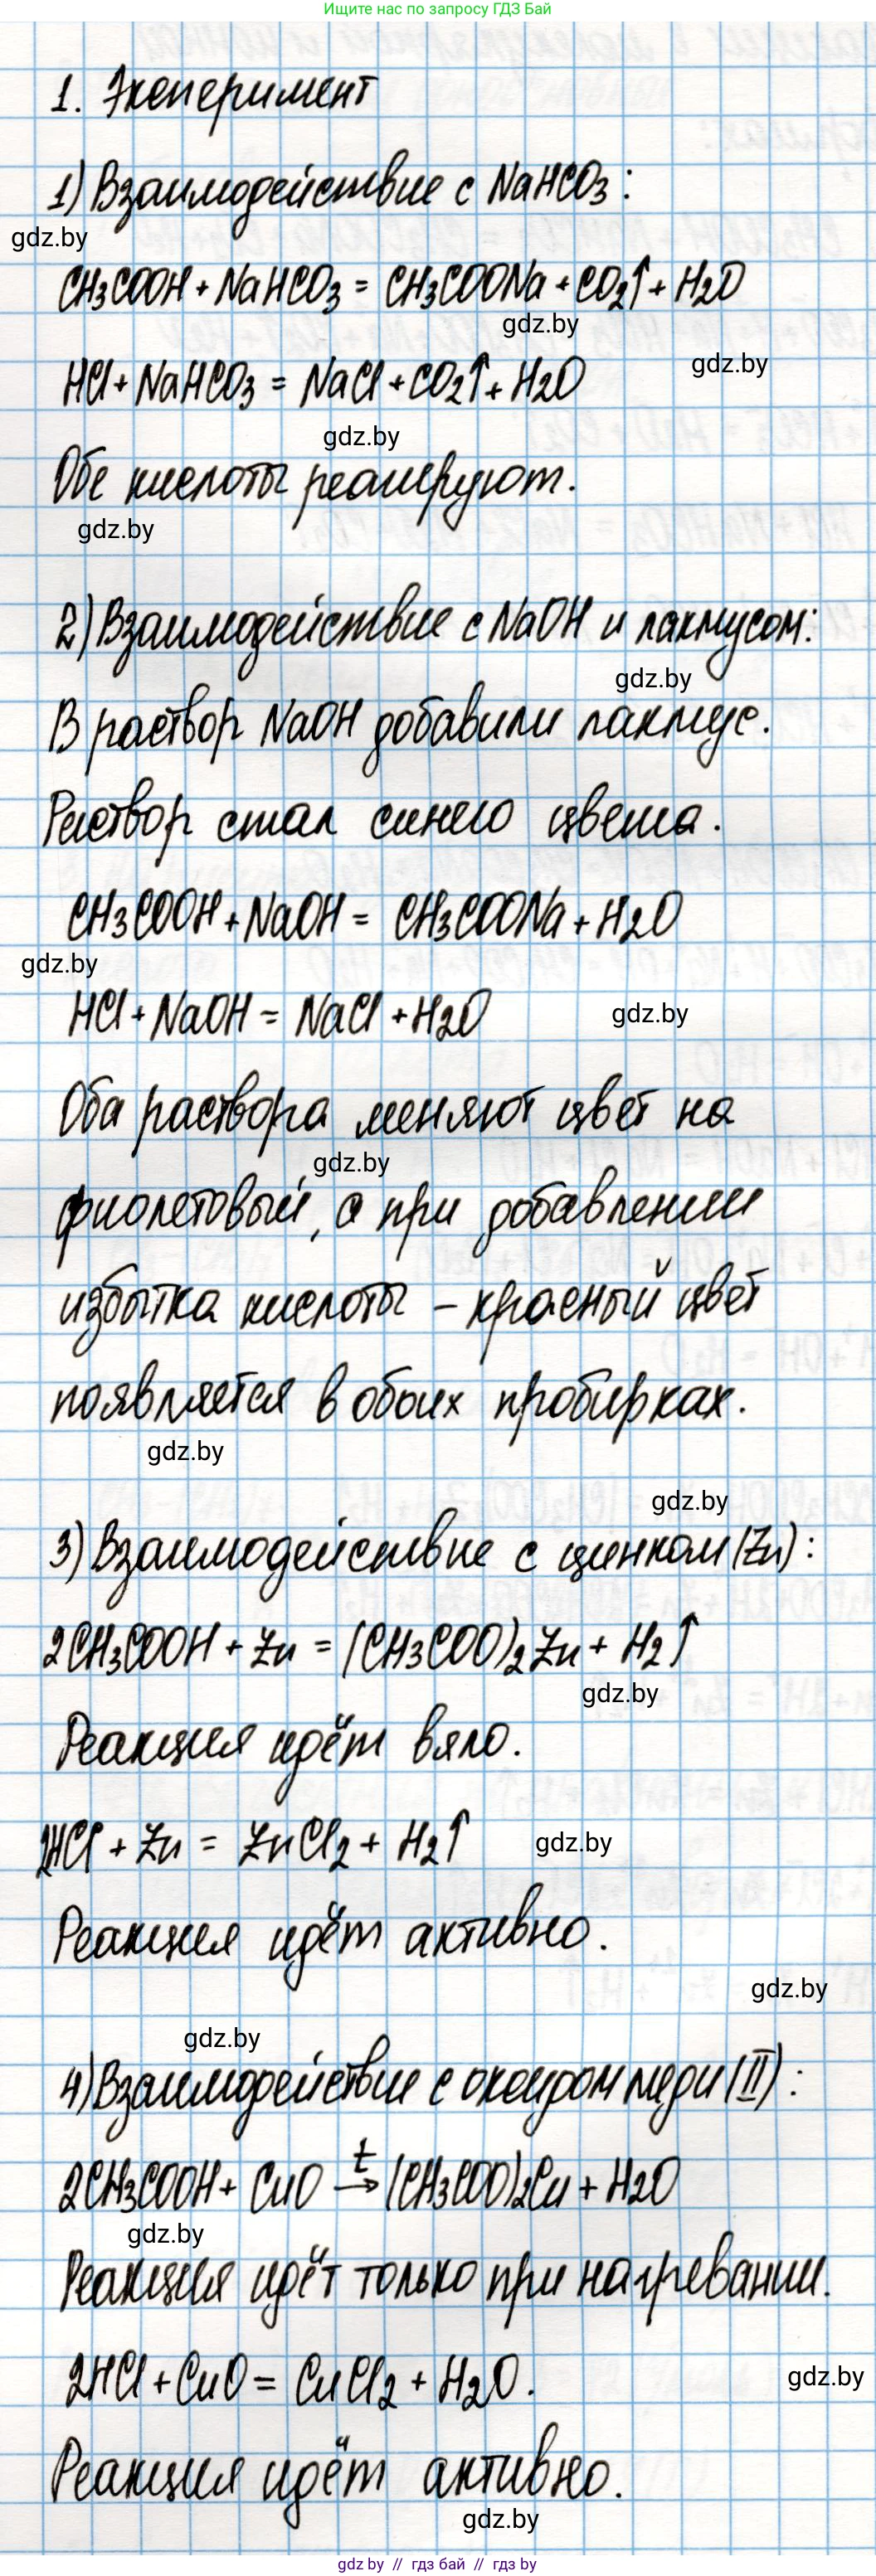 Ищите нас по запросу ГДЗ Бай
1. Эксперимент
1) Взаимодействие с NaHCO₃:
gdz.by
CH₃COOH + NaHCO₃ = CH₃COONa + CO₂↑ + H₂O
gdz.by
HCl + NaHCO₃ = NaCl + CO₂↑ + H₂O
gdz.by
gdz.by
Обе кислоты реагируют.
gdz.by
2) Взаимодействие с NaOH и лакмусом:
gdz.by
В раствор NaOH добавили лакмус.
Раствор стал синего цвета.
CH₃COOH + NaOH = CH₃COONa + H₂O
gdz.by
HCl + NaOH = NaCl + H₂O
gdz.by
Оба раствора меняют цвет на
gdz.by
фиолетовый, а при добавлении
избытка кислоты – красный цвет
появляется в обоих пробирках.
gdz.by
gdz.by
3) Взаимодействие с цинком (Zn):
2CH₃COOH + Zn = (CH₃COO)₂Zn + H₂↑
gdz.by
Реакция идёт вяло.
2HCl + Zn = ZnCl₂ + H₂↑
gdz.by
Реакция идёт активно.
gdz.by
gdz.by
4) Взаимодействие с оксидом меди (II):
2CH₃COOH + CuO →t (CH₃COO)₂Cu + H₂O
gdz.by
Реакция идёт только при нагревании.
2HCl + CuO = CuCl₂ + H₂O.
gdz.by
Реакция идёт активно.
gdz.by
gdz by // гдз бай // gdz by